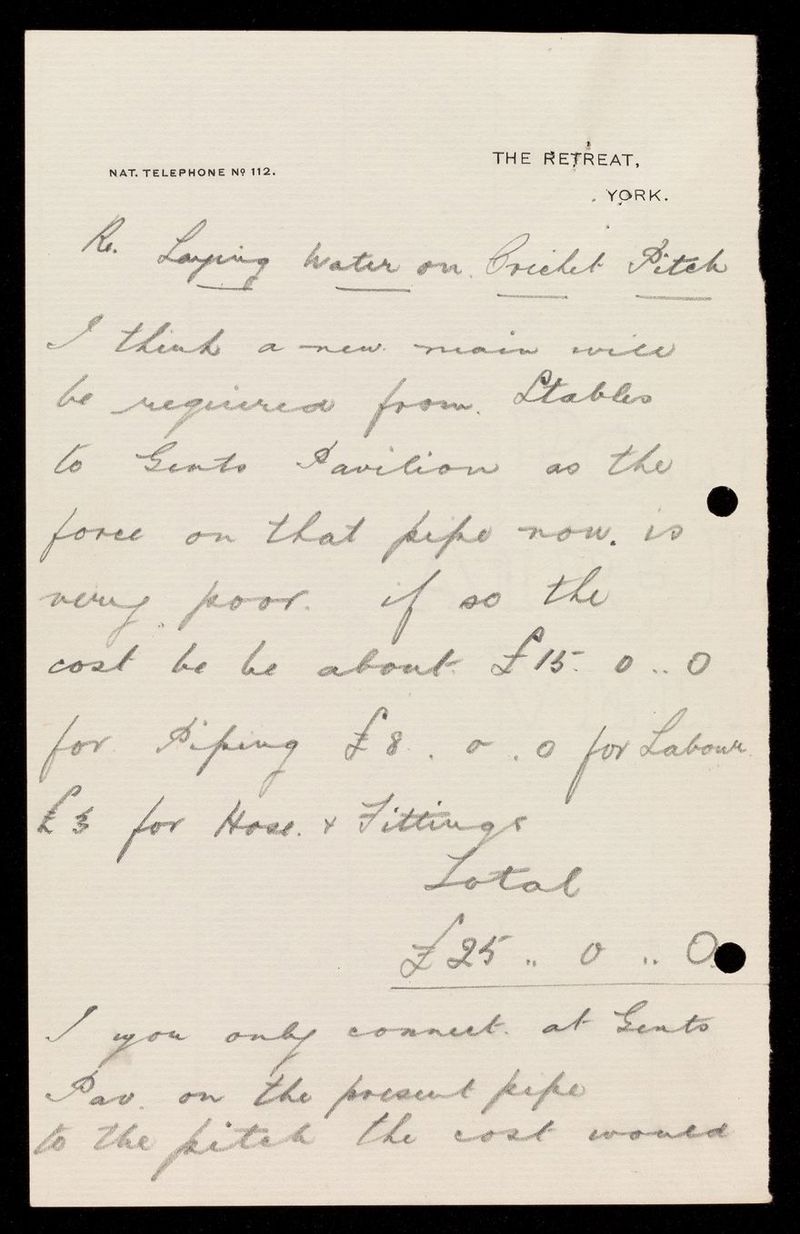 NAT. TELEPHONE Nº 112.
THE RETREAT,
YORK.
Re. Laying Water on Cricket Pitch
I think a new main will
be required from Stables
to Gents Pavilion as the
force on that pipe now. is
very poor. if so the
cost be be about £15. 0 .. 0
for Piping £8 . 0 . 0 for Labour
£3 for Hose. & Fittings
Total
£25 .. 0 .. 0
I you only connect. at Gents
Pav. on the present pipe
to the pitch the cost would